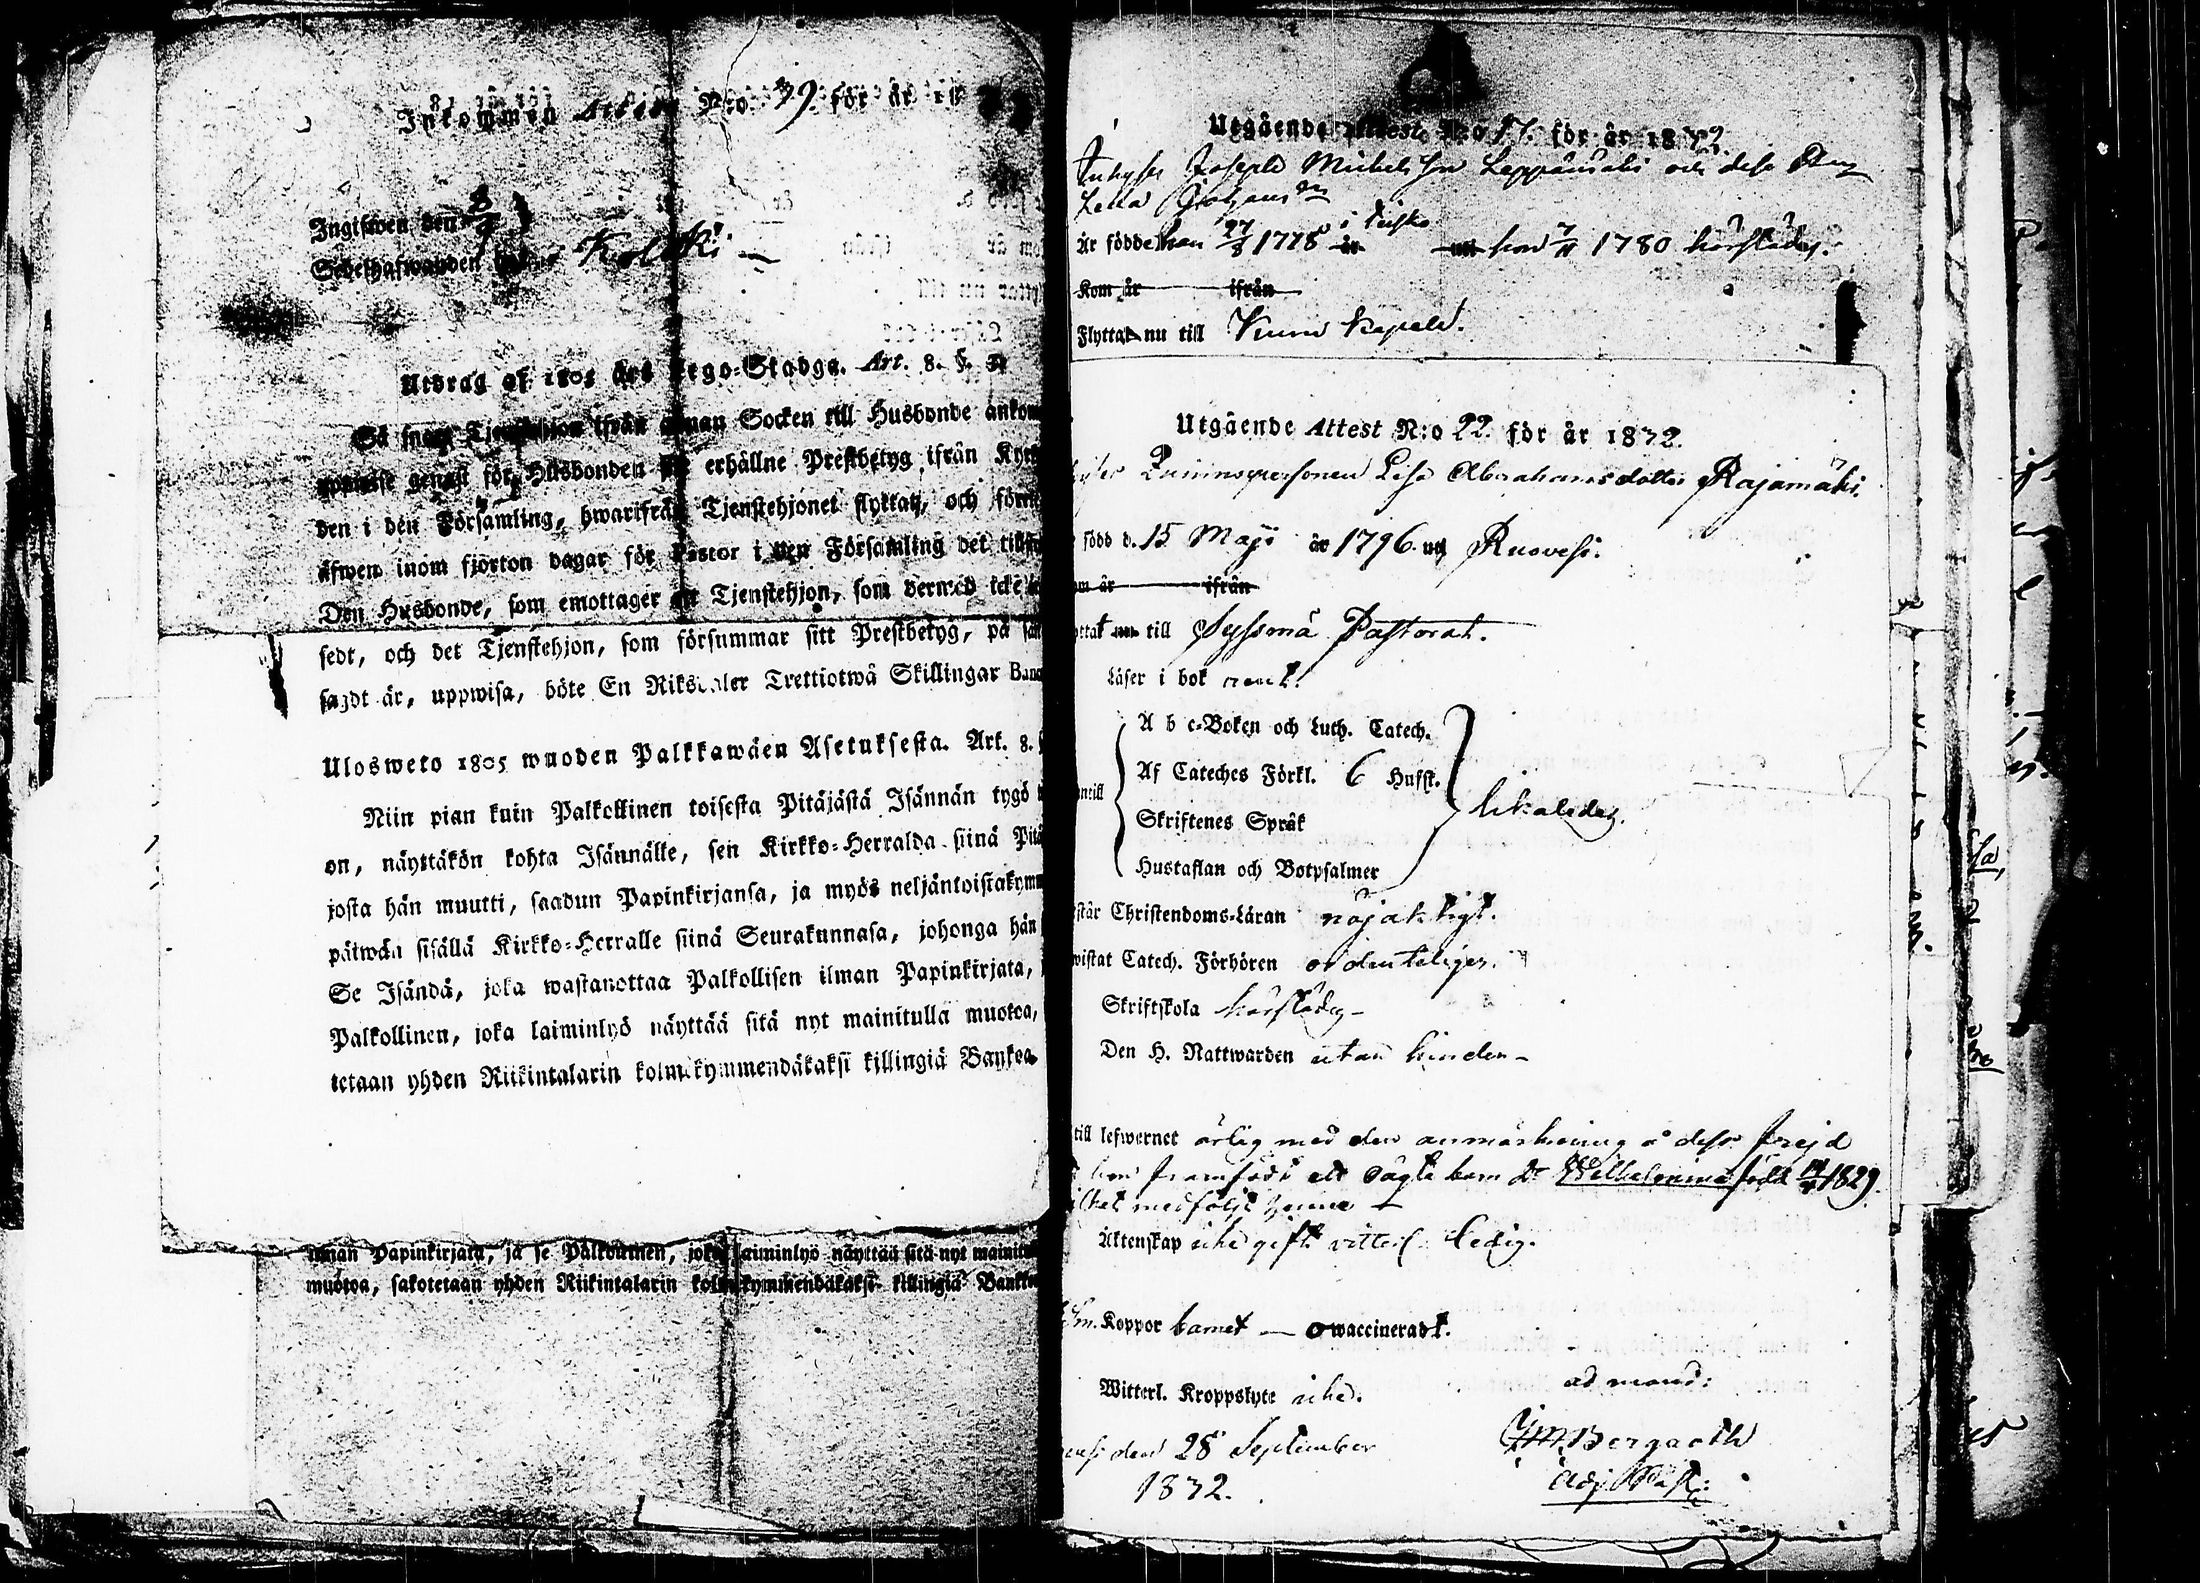 Inkommen Attest N:o 79 för år 18
Ingifwen den 8/9
Sedelhafwanden Kolkki
Utdrag af 1805 års Lego-Stadga. Art. 8. §.
Så snart Tjenstehjon ifrån annan Socken till Husbonde ankom
uppwise genast för Husbonden erhållne Prestbetyg ifrån Kyrk
den i den Församling, hwarifrån Tjenstehjonet flyttat, och förr
äfwen inom fjorton dagar för Pastor i den Församling det till
Den Husbonde, som emottager ett Tjenstehjon, som dermed icke
sedt, och det Tjenstehjon, som försummar sitt Prestbetyg, på
sagdt är, uppwisa, böte En Riksdaler Trettiotwå Skillingar Banco
Ulosweto 1805 wuoden Palkkawäen Asetuksesta. Art. 8. §
Niin pian kuin Palkollinen toisesta Pitäjästä Isännän tygö
on, näyttäkön kohta Isännälle, sen Kirkko-Herralda siinä Pitä
josta hän muutti, saadun Papinkirjansa, ja myös neljäntoistakymm
päiwän sisällä Kirkko-Herralle siinä Seurakunnasa, johonga hän
Se Isändä, joka wastanottaa Palkollisen ilman Papinkirjata,
Palkollinen, joka laiminlyö näyttää sitä nyt mainitulla muotoa,
tetaan yhden Riikintalarin kolmekymmendäkaksi killingiä Bankoa
ilman Papinkirjata, ja se Palkollinen, joka laiminlyö näyttää sitä nyt mainitul
muotoa, sakotetaan yhden Riikintalarin kolmekymmendäkaksi killingiä Banko
Utgående Attest N:o 17. för år 1832.
Inhyses Joseph Michelsson Leppämäki och dess
Lena Johansdr
är födde han 27/8 1778 i hon 7/11 1780 härstädes.
Kom år ifrån
Flyttat nu till Kapell.
Utgående Attest N:o 22. för år 1832.
Qvinnspersonen Lisa Abrahamsdotter Rajamäki
född d. 15 Maji år 1796. uti Ruovesi.
om år ifrån
yttat nu till Syssmä Pastorat.
Läser i bok rent.
A b c-Boken och Luth. Catech.
Af Cateches Förkl. 6 Hufst.
Skriftenes Språk
Hustaflan och Botpsalmer
likaledes.
rstår Christendoms-Läran nöjaktigt.
wistat Catech. Förhören ordenteligen.
Skriftskola härstädes
Den H. Nattwarden utan hinder
till lefwernet ärlig med den anmärkning å dess frejd
hon framfödt ett oägta barn Wilhelmina född 1829.
ilket medföljt henne
Äktenskap icke gift witterl. ledig.
Koppor barnet — owaccineradt.
Witterl. Kroppslyte icke.
ad mand:
den 28 September
1832.
Bergroth
Adj. Past: